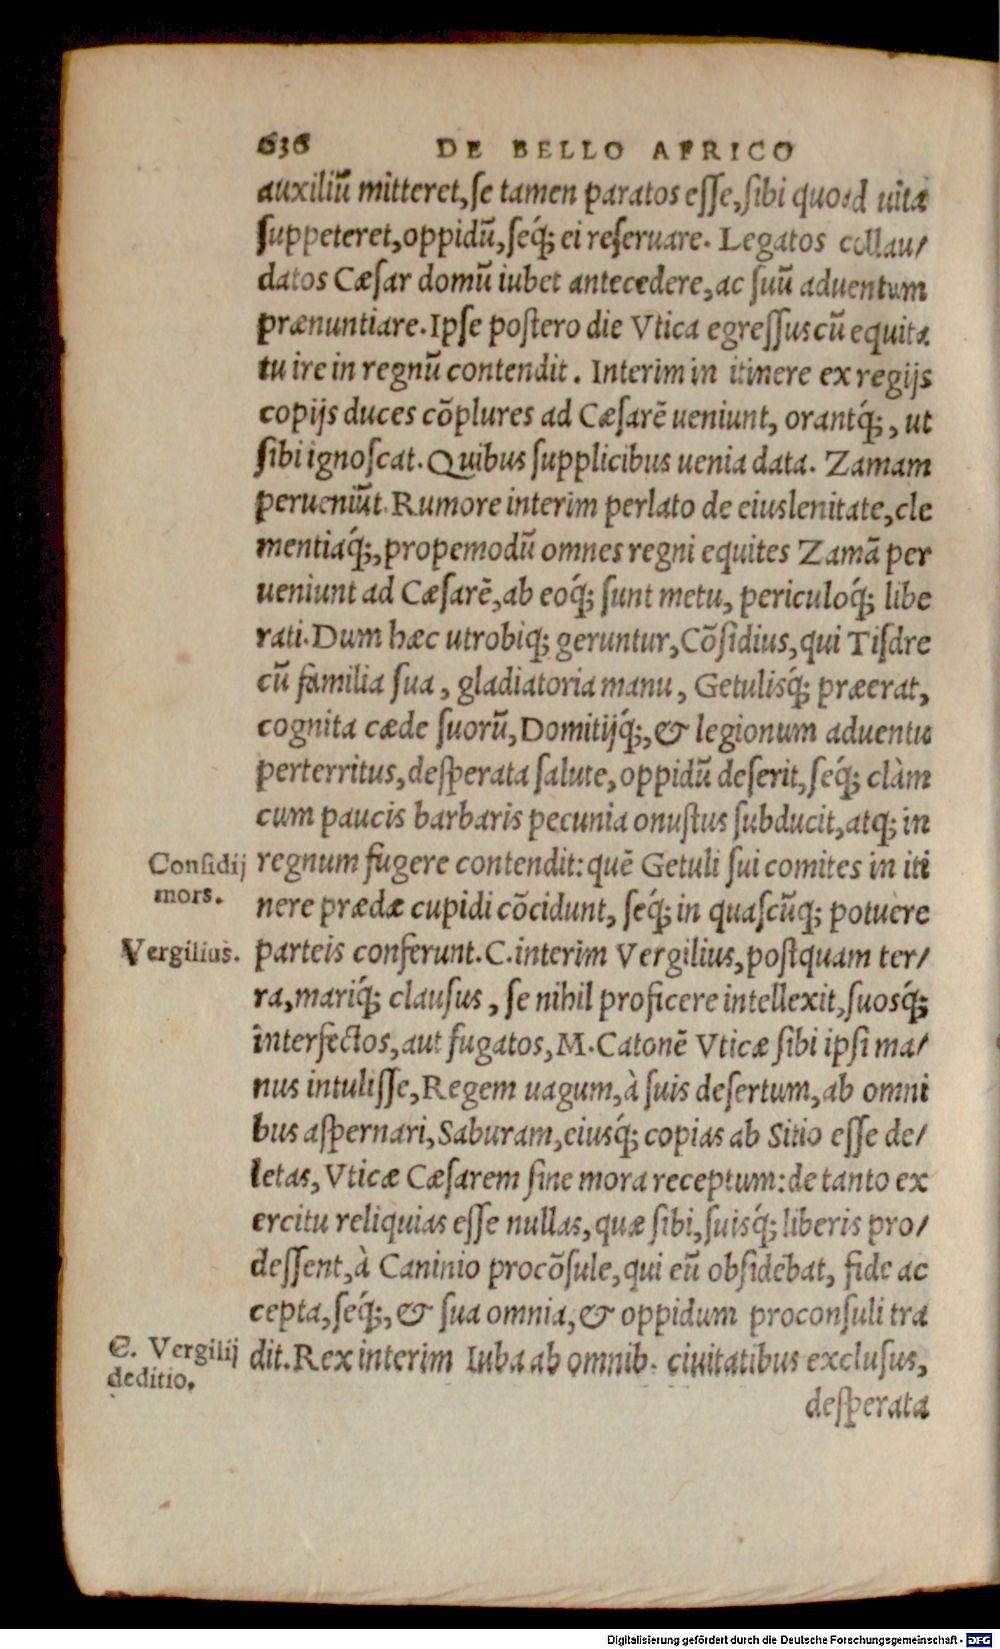 636 DE BELLO AFRICO
auxiliũ mitteret, se tamen paratos esse, sibi quoad uita
suppeteret, oppidũ, seq́; ei reseruare. Legatos collau/
datos Cæsar domũ iubet antecedere, ac suũ aduentum
prænuntiare. Ipse postero die Vtica egressus cũ equita
tu ire in regnũ contendit. Interim in itinere ex regijs
copijs duces cõplures ad Cæsarẽ ueniunt, orantq́;, ut
sibi ignoscat. Quibus supplicibus uenia data. Zamam
perueniũt. Rumore interim perlato de eius lenitate, cle
mentiaq́;, propemodũ omnes regni equites Zamã per
ueniunt ad Cæsarẽ, ab eoq́; sunt metu, periculoq́; libe
rati. Dum hæc utrobiq; geruntur, Cõsidius, qui Tisdre
cũ familia sua, gladiatoria manu, Getulisq́; præerat,
cognita cæde suorũ, Domitijq́;, & legionum aduentu
perterritus, desperata salute, oppidũ deserit, seq́; clàm
cum paucis barbaris pecunia onustus subducit, atq; in
Considij
mors.
regnum fugere contendit: quẽ Getuli sui comites in iti
nere prædæ cupidi cõcidunt, seq́; in quascũq; potuere
Vergilius.
parteis conferunt. C. interim Vergilius, postquam ter/
ra, mariq́; clausus, se nihil proficere intellexit, suosq́;
interfectos, aut fugatos, M. Catonẽ Vticæ sibi ipsi ma/
nus intulisse, Regem uagum, à suis desertum, ab omni
bus aspernari, Saburam, eiusq́; copias ab Sitio esse de/
letas, Vticæ Cæsarem sine mora receptum: de tanto ex
ercitu reliquias esse nullas, quæ sibi, suisq́; liberis pro/
dessent, à Caninio procõsule, qui eũ obsidebat, fide ac
cepta, seq́;, & sua omnia, & oppidum proconsuli tra
C. Vergilij
deditio.
dit. Rex interim Iuba ab omnib. ciuitatibus exclusus,
desperata
Digitalisierung gefördert durch die Deutsche Forschungsgemeinschaft - DFG